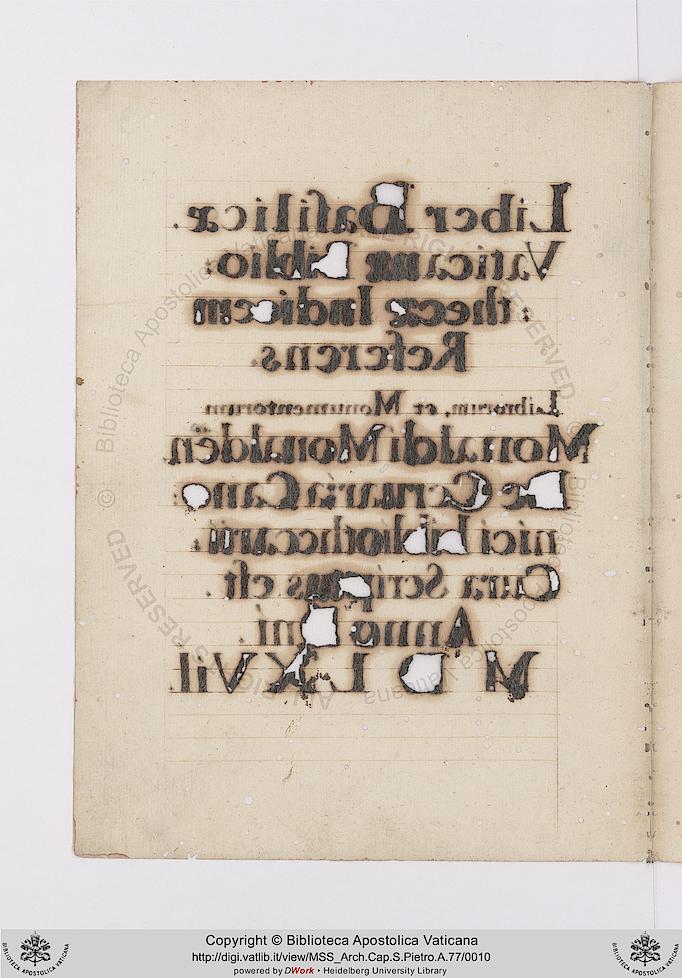 Liber Basilicæ.
Vaticanæ Biblio:
thecæ Indicem
Referens.
Librorum, et Monumentorum
Monaldi Monaldën.
De Ceruaria Cano:
nici bibliothecarii.
Cura Scriptus est.
Anno ni.
M D L X Vii.
© Biblioteca Apostolica Vaticana
ALL RIGHTS RESERVED
Copyright © Biblioteca Apostolica Vaticana
http://digi.vatlib.it/view/MSS_Arch.Cap.S.Pietro.A.77/0010
powered by DWork • Heidelberg University Library
BIBLIOTECA APOSTOLICA VATICANA
BIBLIOTECA APOSTOLICA VATICANA